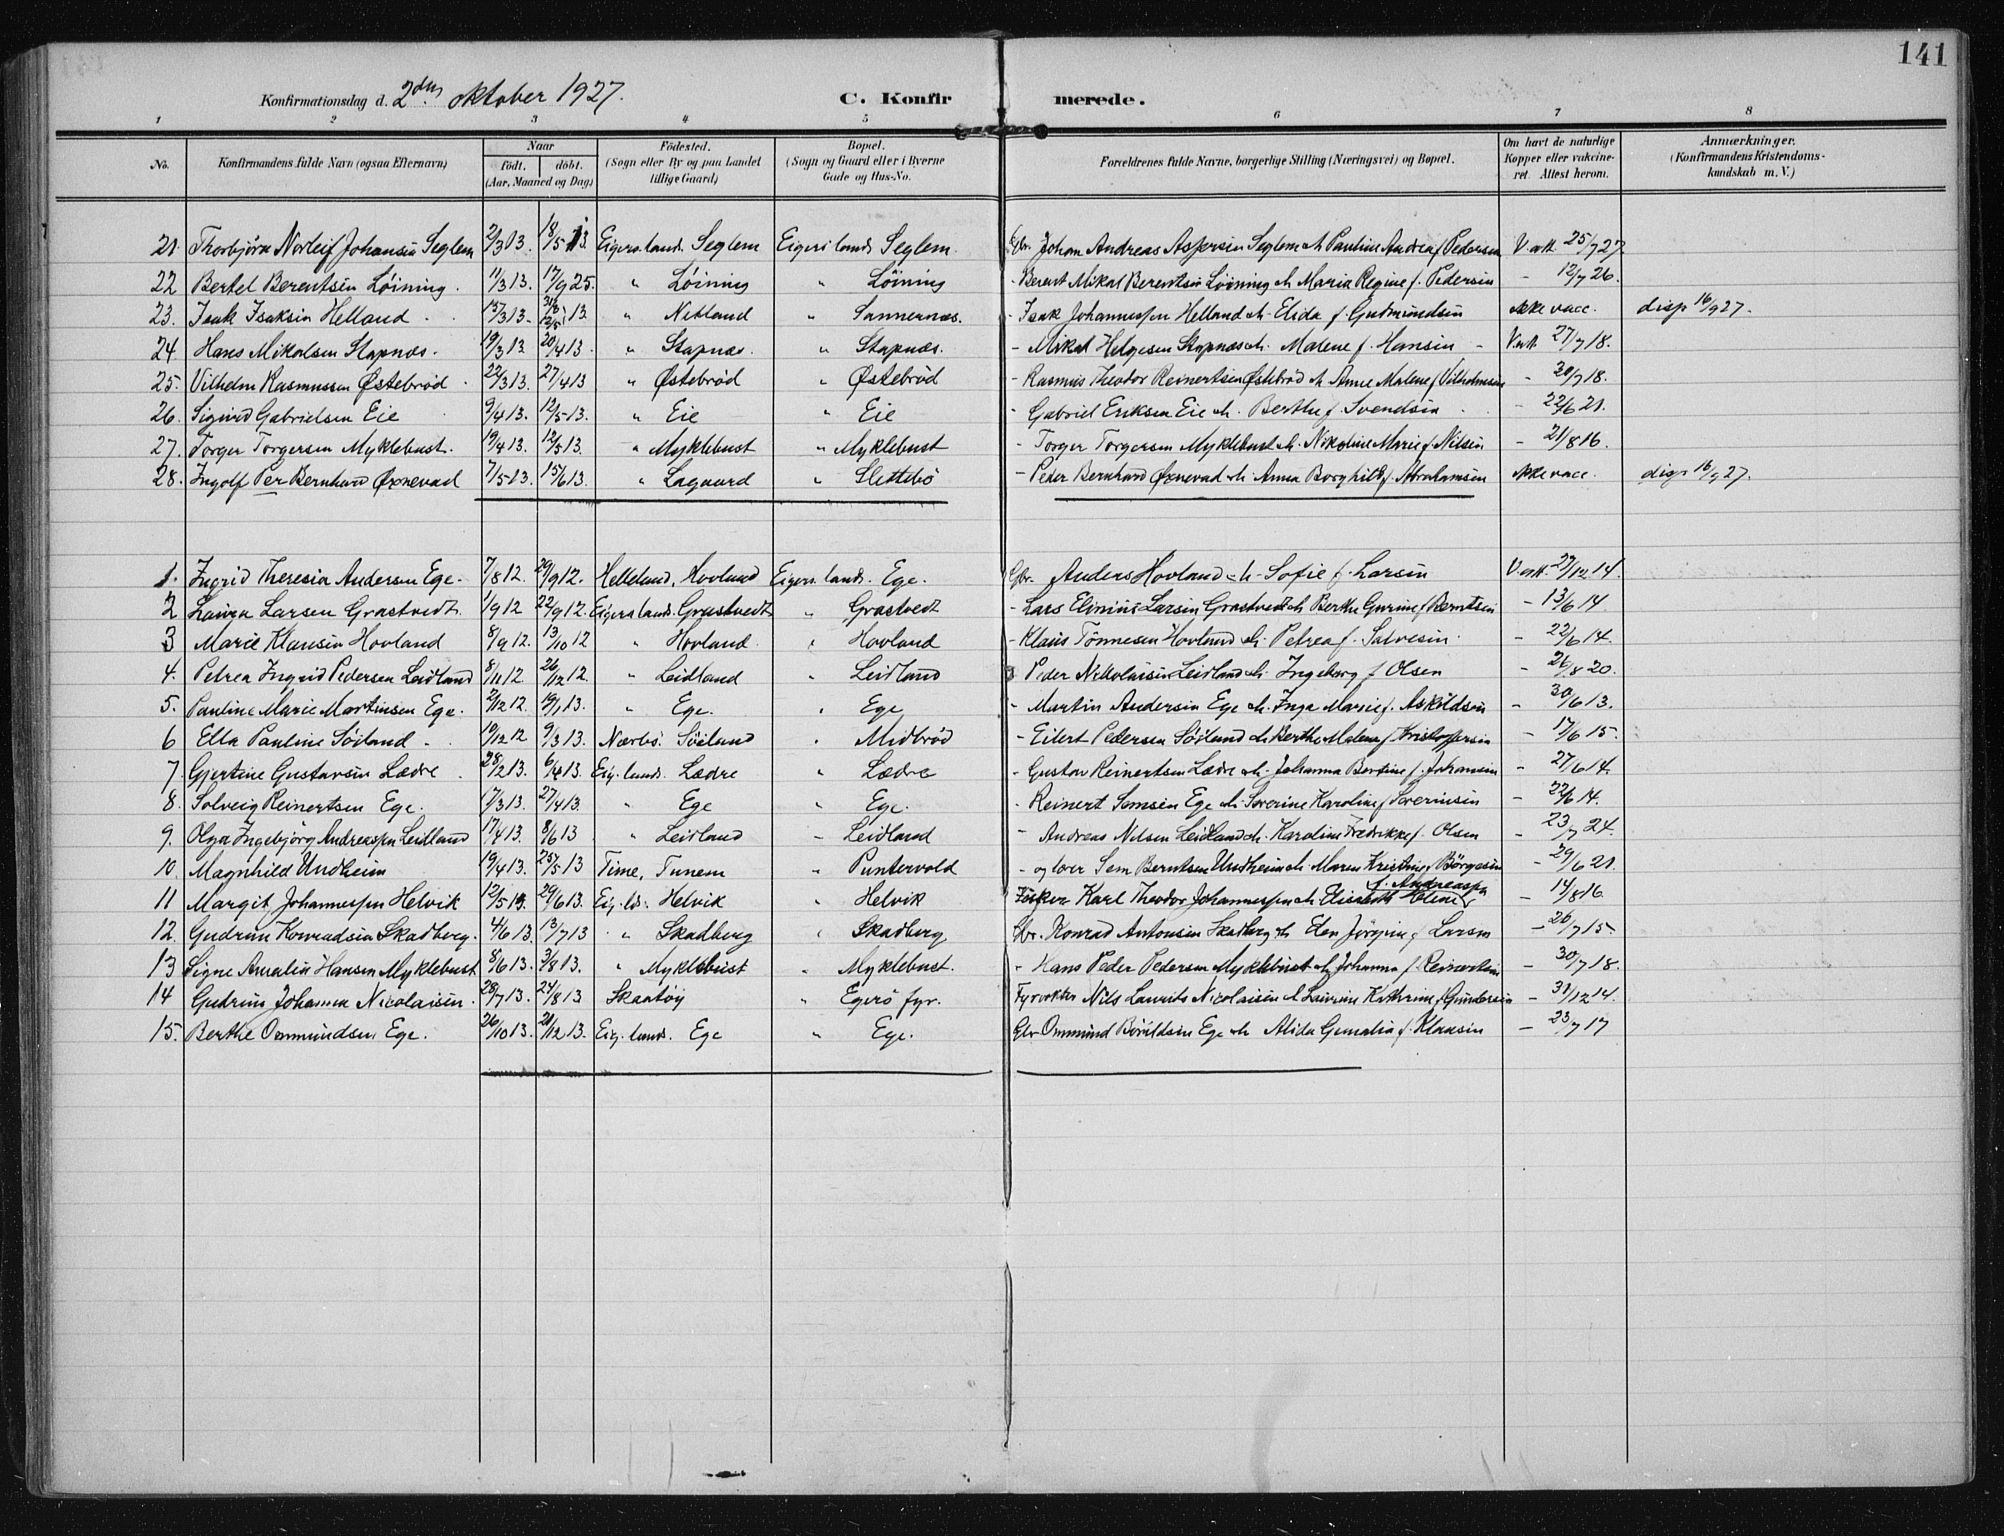 141
Konfirmationsdag d. 2den oktober 1927. C. Konfirmerede.
1 2 3 4 5 6 7 8
No. Konfirmandens fulde Navn (ogsaa Efternavn) Naar födt. döbt. (Aar, Maaned og Dag) Födested. (Sogn eller By og paa Landet tillige Gaard) Bopæl. (Sogn og Gaard eller i Byerne Gade og Hus-No. Forældrenes fulde Navne, borgerlige Stilling (Næringsvei) og Bopæl. Om havt de naturlige Kopper eller vakcineret. Attest herom. Anmærkninger. (Konfirmandens Kristendomskundskab m. V.)
21. Thorbjörn Norleif Johansen Seglem 2/3 13. 18/5 13. Eigers.lands. Seglem Eigers lands Seglem. Gbr. Johan Andreas Aspersen Seglem & Pauline Andrea f. Pedersen V. att. 25/7 27.
22 Bertel Berentsen Löining. 11/3 13. 17/9 25. " Löining " Löining - Berent Mikal Berentsen Löining & Maria Regine f. Pedersen - 12/7 26.
23. Isak Isaksen Helland 13/3 13. 12/5 13 " Netland " Sannernæs. - Isak Johannessen Helland & Elida f. Gudmundsen ikke vacc. disp 16/9 27.
24. Hans Mikalsen Stapnæs. 19/3 13 20/4 13. " Stapnæs. " Stapnæs. - Mikal Helgesen Stapnæs & Malene f. Hansen - V. att. 27/7 18.
25. Vilhelm Rasmussen Østebröd 22/3 13. 27/4 13 " Østebröd " Østebröd - Rasmus Theodor Reinertsen Østebröd & Anne Malene f. Vilhelmsen - 30/7 18.
26. Sigurd Gabrielsen Eie 9/4 13. 12/5 13. " Eie " Eie - Gabriel Eriksen Eie & Berthe f. Svendsen - 22/6 21.
27. Torger Torgersen Myklebust. 19/4 13. 12/5 13. " Myklebust " Myklebust - Torger Torgersen Myklebust & Nikoline Marie f. Nilsen - 21/8 16.
28. Ingolf Per Bernhard Øxnevad 7/5 13. 15/6 13. " Lagaard " Slettebö - Peder Bernhard Øxnevad & Anna Borghild f. Abrahamsen ikke vacc. disp 16/9 27.
1. Ingrid Theresia Andersen Ege. 7/8 12. 29/9 12. Helleland, Hovland Eigers. lands. Ege. Gbr. Anders Hovland & Sofie f. Larsen V. att. 27/12 14.
2 Laura Larsen Grastvedt. 1/9 12 22/9 12. Eigers lands. Grastvedt " Grastvedt - Lars Elinius Larsen Grastvedt & Berthe Gurine f. Berntsen - 13/6 14
3 Marie Klausen Hovland 8/9 12. 13/10 12 " Hovland. " Hovland - Klaus Tönnesen Hovland & Petrea f. Salvesen. - 22/6 14.
4. Petrea Ingrid Pedersen Leidland 8/11 12 26/12 12. " Leidland " Leidland Peder Nikolaisen Leidland & Ingeborg f. Olsen - 26/8 20.
5. Pauline Marie Martinsen Ege. 2/12 12 19/1 13. " Ege. " Ege - Martin Andersen Ege & Inga Marie f. Askildsen - 30/6 13.
6 Ella Pauline Söiland 19/12 12 9/3 13. Nærbö. Söiland " Midbröd - Eilert Pedersen Söiland & Berthe Malena f. Kristoffersen - 17/6 15.
7 Gjertine Gustavsen Lædre 28/2 13. 6/4 13. Eig. lands. Lædre " Lædre - Gustav Reinertsen Lædre & Johanna Bertine f. Johansen - 27/6 14.
8. Solveig Reinertsen Ege. 17/3 13. 27/4 13 " Ege " Ege. - Reinert Samsen Ege & Severine Karoline f. Severinsen - 22/6 14.
9. Olga Ingebjörg Andreassen Leidland 17/4 13. 8/6 13 " Leidland " Leidland - Andreas Nilsen Leidland & Karoline Fredrikke f. Olsen - 23/7 24.
10. Magnhild Undheim 19/4 13. 25/5 13 Time, Tunem " Puntervold - og löser Sem Berntsen Undheim & Maren Kristine f. Börgesen - 29/6 21.
11 Margit Johannessen Helvik 12/5 13. 29/6 13. Eig. lds. Helvik " Helvik Fisker Karl Theodor Johannessen & Elisabeth Eline f. Andreassen - 14/8 16.
12. Gudrun Konradsen Skadberg. 4/6 13. 13/7 13 " Skadberg " Skadberg Gbr. Konrad Antonsen Skadberg & Elen Jörgine f. Larsen - 26/7 15.
13 Signe Amalia Hansen Myklebust 8/6 13. 3/8 13. " Myklebust " Myklebust. - Hans Peder Pedersen Myklebust & Johanna f. Reinertsen - 30/7 18.
14 Gudrun Johanna Nicolaisen. 28/7 13. 24/8 13 Skaatöy " Egerö fyr. Fyrvokter Nils Laurits Nicolaisen & Laurine Kathrine f. Gundersen - 31/12 14.
15. Berthe Ommundsen Ege. 26/10 13. 21/12 13. Eig. lands. Ege " Ege. Gbr Ommund Bövildsen Ege & Alida Gemalia f. Klausen - 23/7 17